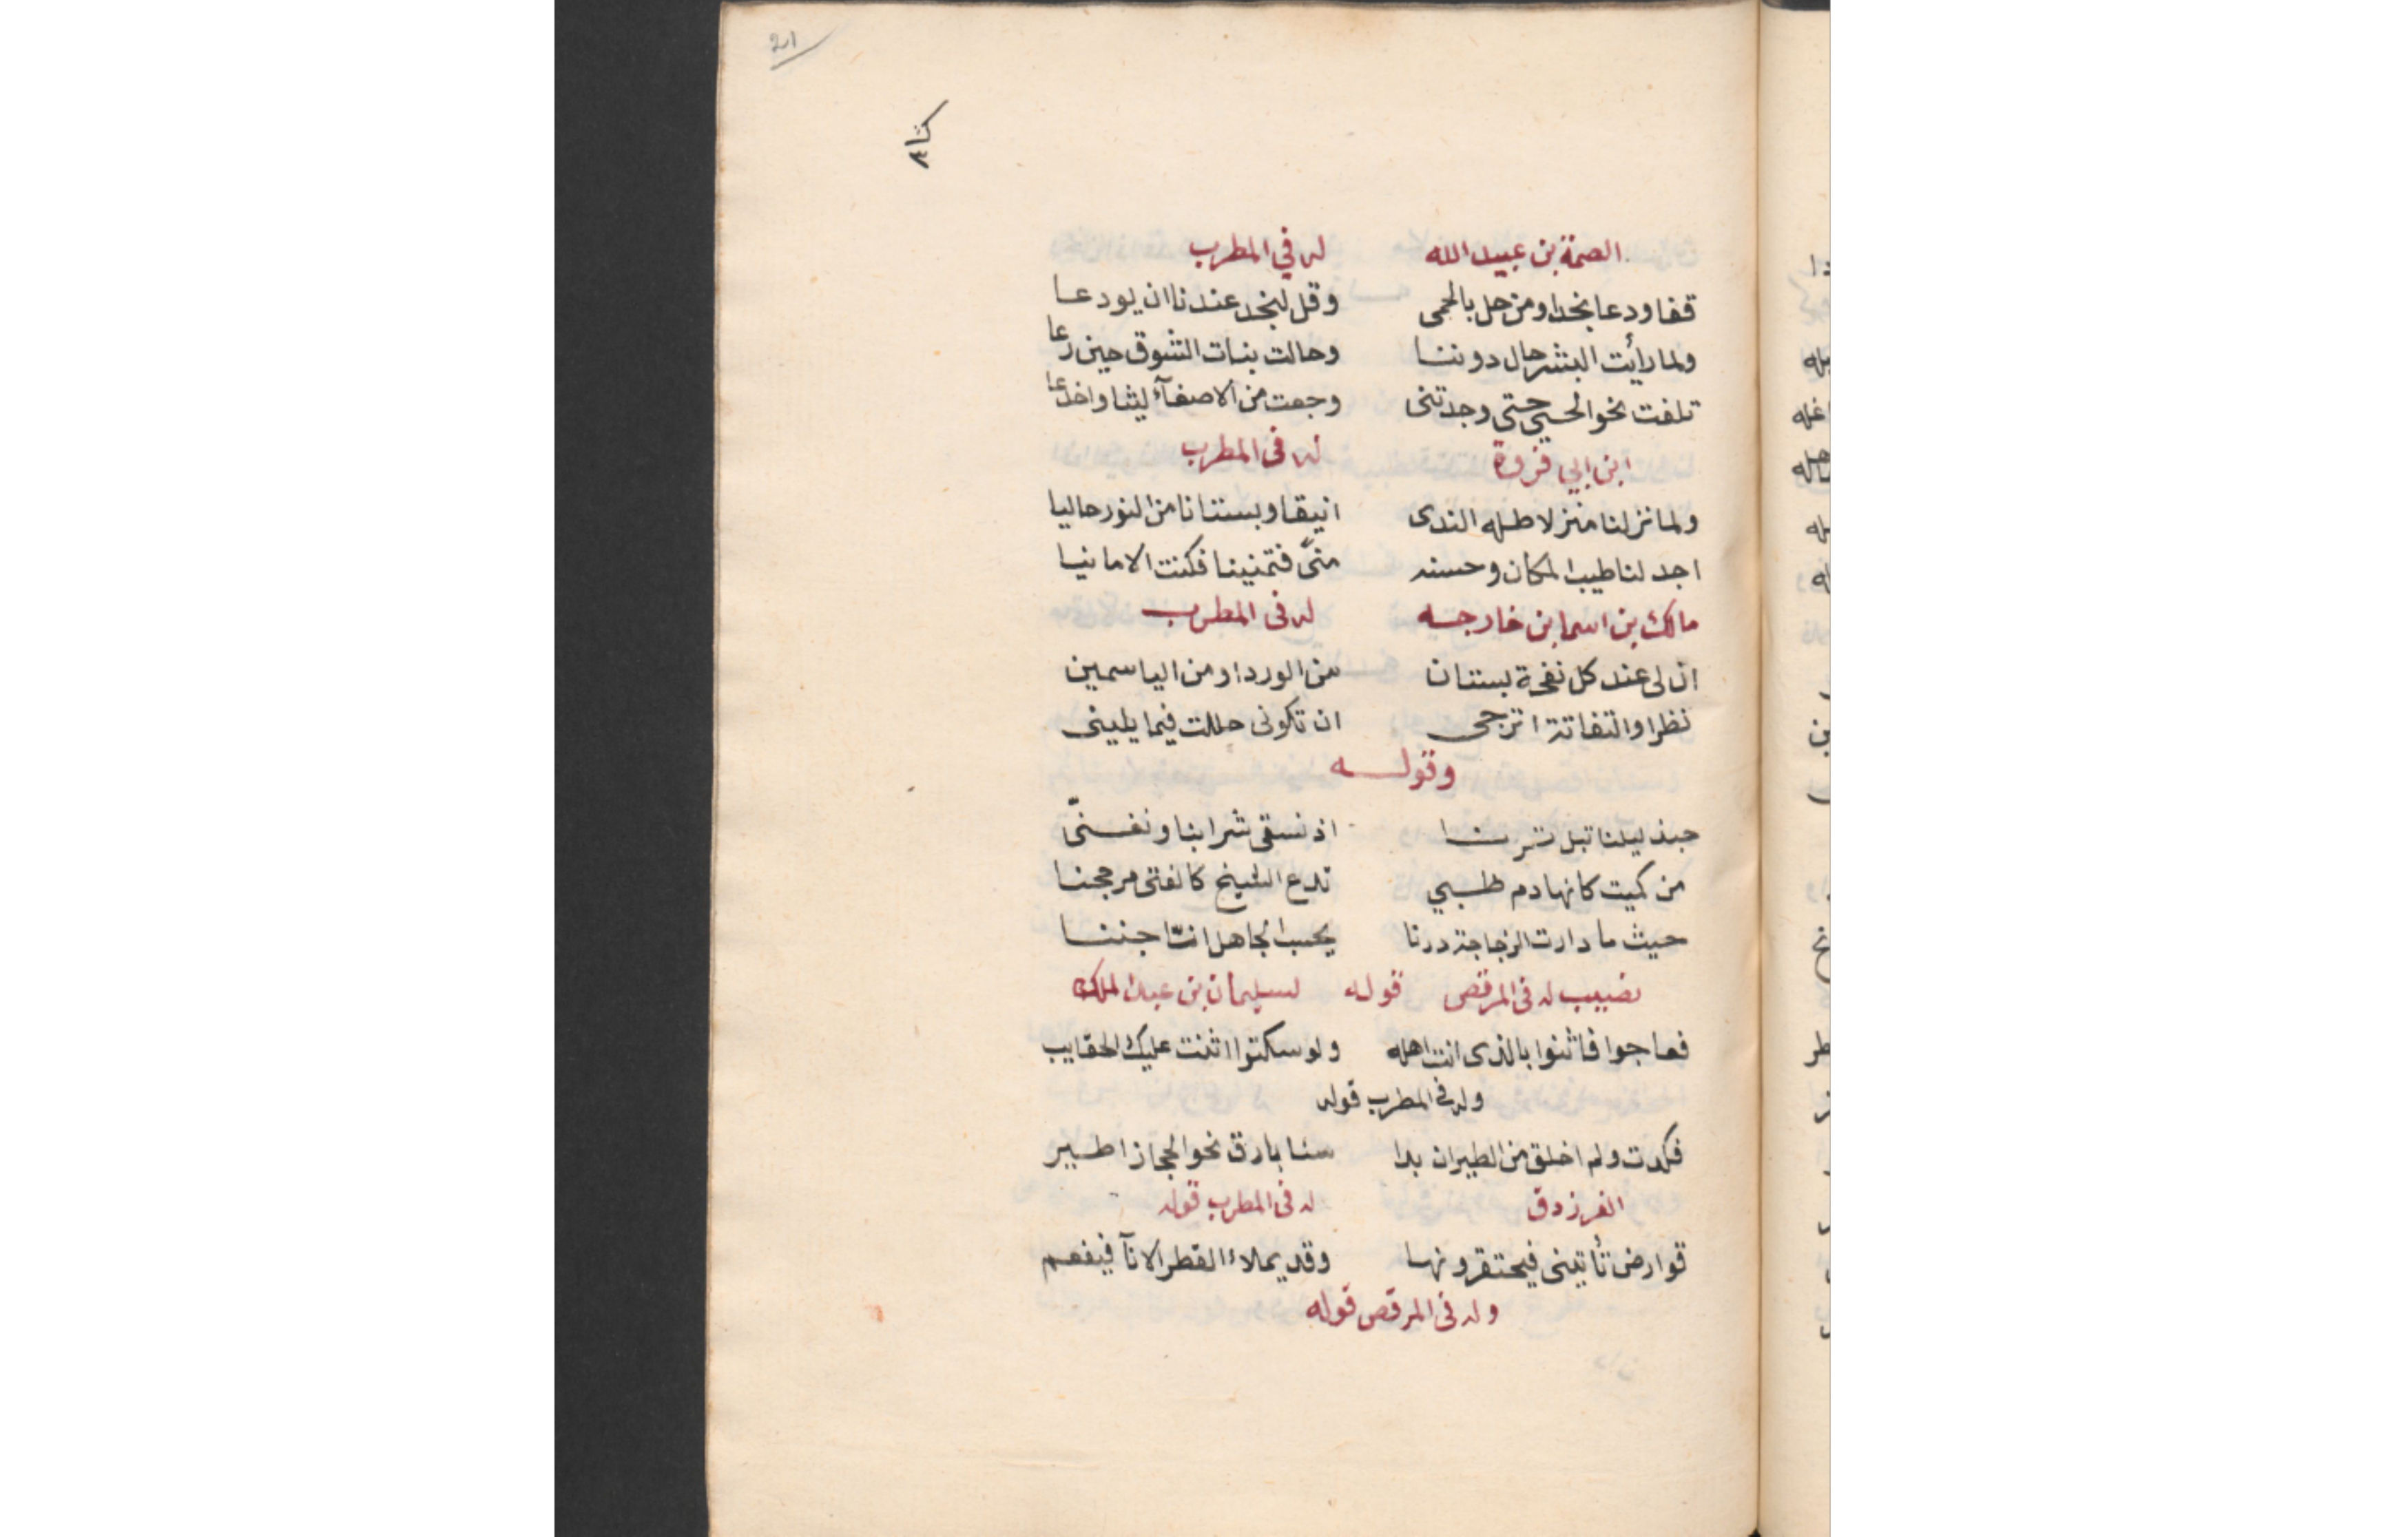 21
الصمة بن عبيد الله له في المطرب
قفا ودعا نجدا ومن حل بالحمى وقل لنجد عندنا ان يودعا
ولما رأيت البشر حال دوننا وحالت بنات الشوق حين نزعا
تلفت نحو الحي حتى وجدتنى وجعت من الاصغآء ليثا واخدعا
ابن ابي فروة له فى المطرب
ولما نزلنا منزلا طله الندى انيقا وبستنانا من النور حاليا
اجد لنا طيب المكان وحسنه منىً فتمنينا فكنت الامانيا
مالك بن اسما بن خارجه له فى المطرب
ان لى عند كل نفحة بستنان من الورد او من الياسمين
نظرا والتفاتة اترجى ان تكونى حللت فيما يلينى
وقوله
حبذ ليلنا تبل اذ نسقى شرابنا ونغنّى
من كميت كانها دم ظبي تدع الشيخ كالفتى مرجحنا
حيث ما دارت الزجاجة درنا يحسب الجاهل انّنا جننا
نصيب له فى المرقص قوله لسليمان بن عبد الملك
فعاجوا فاثنوا بالذى انت اهله ولو سكتوا اثنت عليك الحقايب
وله فى المطرب قوله
فكدت ولم اخلق من الطيران بدا سنا بارق نحو الحجاز اطير
الفرزدق له فى المطرب قوله
قوارض تأتينى فيحتقرونها وقد يملاء القطر الانآ فيفعم
وله فى المرقص قوله